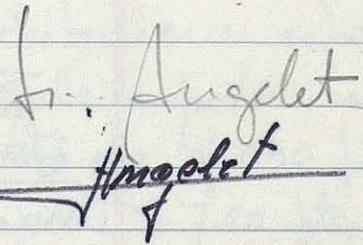 Fr. Angelet
Angelet